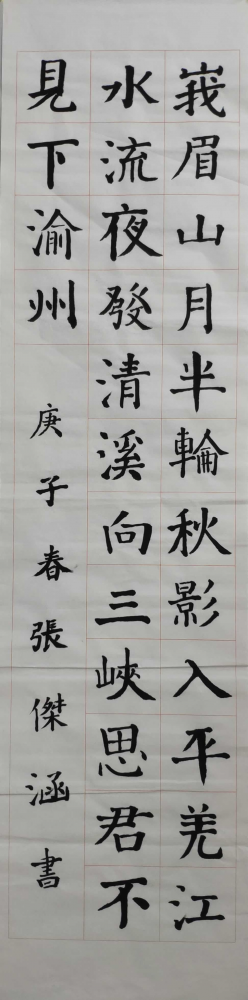 峩眉山月半輪秋影入平羌江
水流夜發清溪向三峽思君不
見下渝州
庚子春張傑涵書